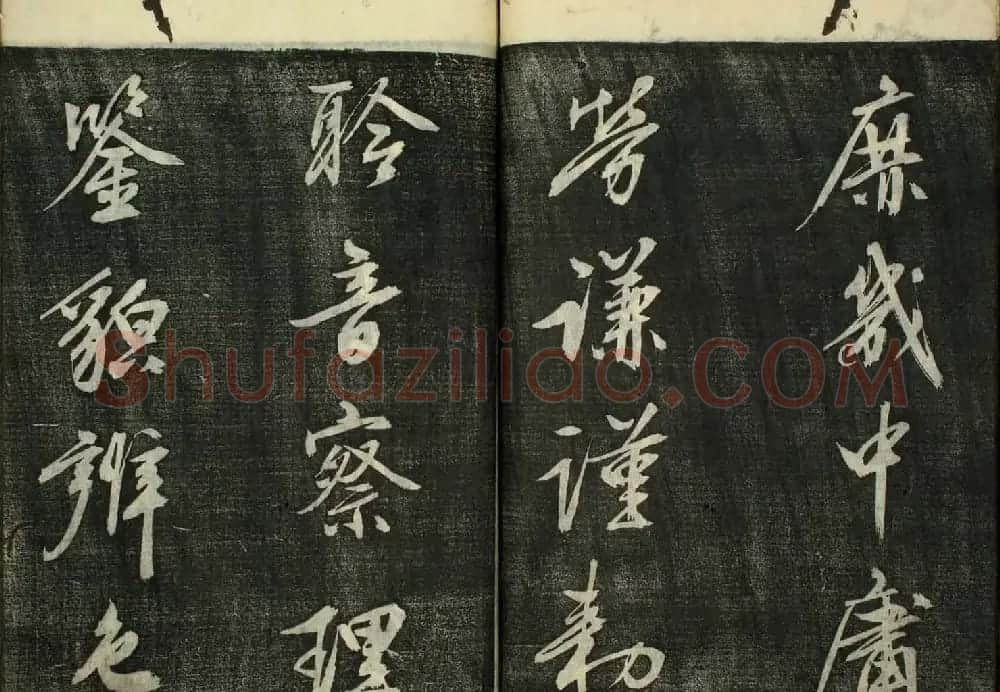 庶幾中庸
勞謙謹勑
聆音察理
鑒貌辨色
Shufazilidao.COM